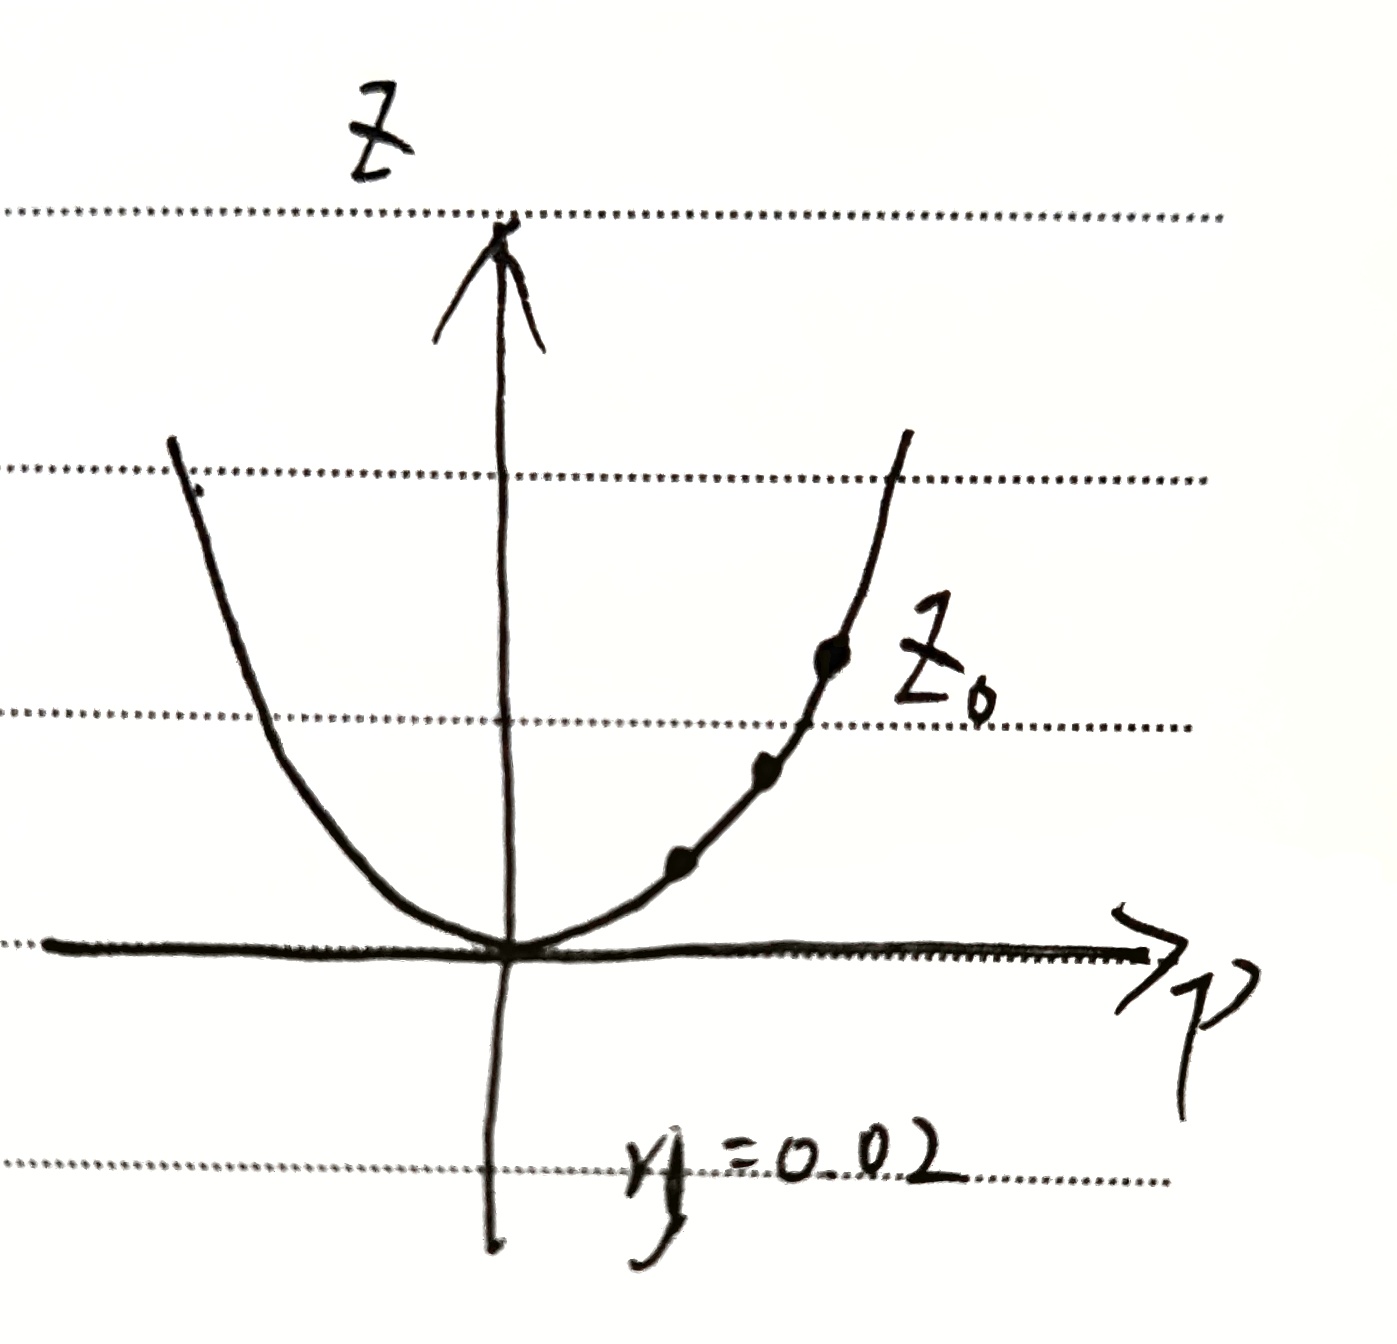 z
z₀
p
η=0.02